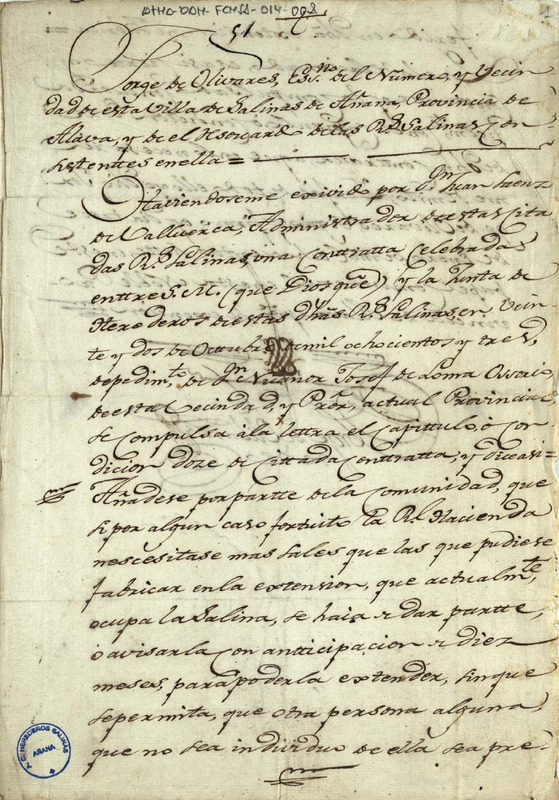 ATHA-DDH-FCHSA-014-002
51
Jorge de Olivares, Es.no del Numero, y Vecin
dad de esta Villa de Salinas de Añana, Provincia de
Alava, y de el Resguardo de las R.s Salinas, Con
sistentes en ella =
Haviendoseme exivido por D.n Juan Saenz
de Valluerca, Administrador de estas Cita
das R.s Salinas una Contratta Celebrada
enttre S. M. (que Dios gue) y la Junta de
Herederos de estas dhas R.s Salinas, en Vein
te y dos de Octtubre de mil ochocientos y tres,
depedim.to de D.n Nicanor Josef de Loma Ossorio,
de esta Vecindad, y Pror, actual Provincial
se compulsa à la lettra el Capittulo, ò Con
dicion doze de Cittada Conttratta, y dice asi=
Añadese por partte de la Comunidad, que
si por algun caso fortuito la R.l Hacienda
nescesitase mas Sales que las que pudiese
fabricar en la extension, que actualm.te
ocupa la Salina, se haia de dar partte,
ò avisarla Con antticipacion de diez
meses, para poderla extender, sin que
se permita, que otra persona alguna
que no sea individuo de ella sea pre-
HEREDEROS SALINAS
AÑANA